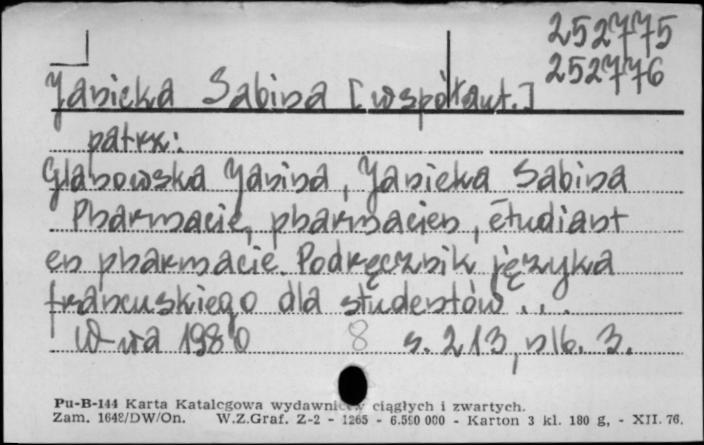 252775
252776
Janicka Sabina [współaut.]
patrz:
Glanowska Janina, Janicka Sabina
Pharmacie, pharmacien, étudiant
en pharmacie. Podręcznik języka
francuskiego dla studentów...
W-wa 1980 8 s. 213, nlb. 3.
Pu-B-144 Karta Katalogowa wydawnictw ciągłych i zwartych.
Zam. 1648/DW/On. W.Z.Graf. Z-2 - 1265 - 6.590 000 - Karton 3 kl. 180 g, - XII. 76.